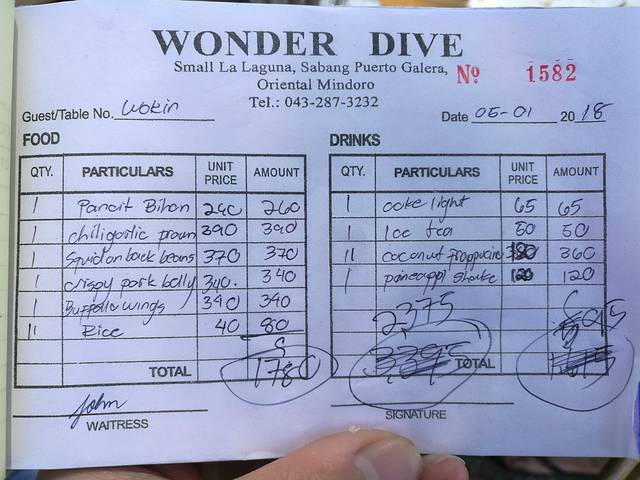 WONDER DIVE
Small La Laguna, Sabang Puerto Galera,
Oriental Mindoro
Tel.: 043-287-3232
No 1582
Guest/Table No. Wokin
Date 05-01 2018
FOOD
QTY. PARTICULARS UNIT PRICE AMOUNT
1 Pancit Bihon 260 260
1 chiligarlic prawn 390 390
1 Squid on back beans 370 370
1 crispy pork belly 340. 340
1 Buffalo wings 340 340
11 Rice 40 80
TOTAL 1780
John
WAITRESS
DRINKS
QTY. PARTICULARS UNIT PRICE AMOUNT
1 coke light 65 65
1 Ice tea 50 50
11 coconut frappucin 180 360
1 paineappl shake 120 120
2375 595
TOTAL
SIGNATURE